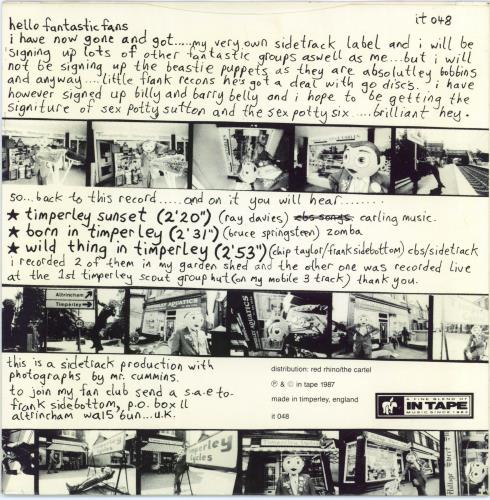 it 048
hello fantastic fans
i have now gone and got.....my very own sidetrack label and i will be
signing up lots of other fantastic groups aswell as me...but i will
not be signing up the beastie puppets as they are absolutley bobbins
and anyway....little frank recons he's got a deal with go discs. i have
however signed up billy and barry belly and i hope to be getting the
signiture of sex potty sutton and the sex potty six.....brilliant hey.
so...back to this record.....and on it you will hear........
★ timperley sunset (2'20") (ray davies) cbs songs carling music.
★ born in timperley (2'31") (bruce springsteen) zomba
★ wild thing in timperley (2'53") (chip taylor/frank sidebottom) cbs/sidetrack
i recorded 2 of them in my garden shed and the other one was recorded live
at the 1st timperley scout group hut (on my mobile 3 track) thank you.
Altrincham
Timperley
AQUATICS
this is a sidetrack production with
photographs by mr. cummins.
to join my fan club send a s-a-e to-
frank sidebottom, p.o. box 11
altrincham wa15 6un...u.k.
distribution: red rhino/the cartel
℗ & © in tape 1987
made in timperley, england
it 048
A FINE BLEND OF
IN TAPE
MUSIC SINCE 1983
Timperley
Cycles
Village